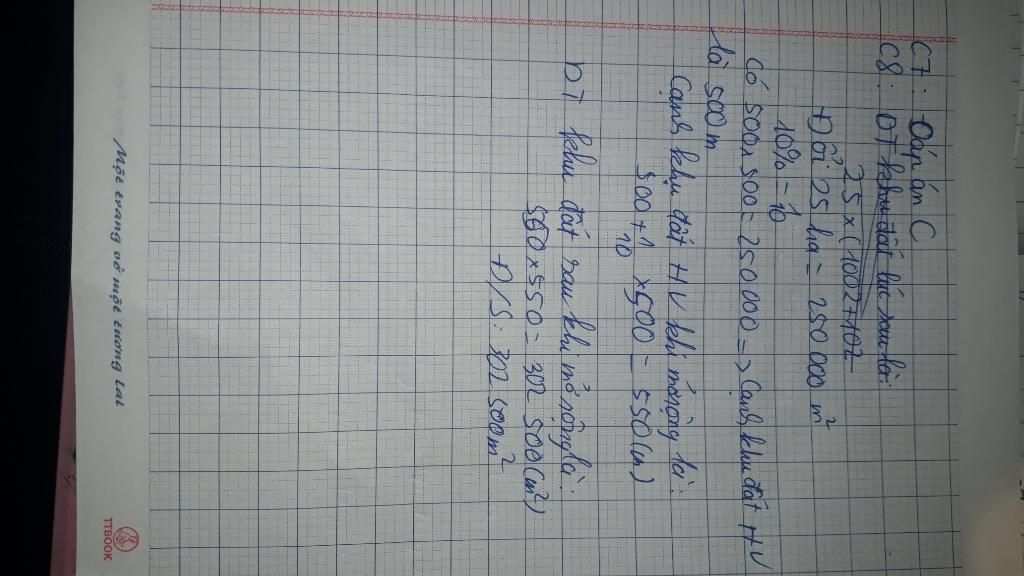 C7: Đáp án C
C8: DT khu đất lúc sau là:
25 x (100%+10%
Đổi 25 ha = 250 000 m²
10% = 1/10
Có 500 x 500 = 250 000 => Cạnh khu đất HV
là 500m
Cạnh khu đất HV khi mở rộng là:
500 + 1/10 x 500 = 550 (m)
DT khu đất sau khi mở rộng là:
550 x 550 = 302 500 (m²)
Đ/S: 302 500m²
Một trang vở một tương lai
TTBOOK